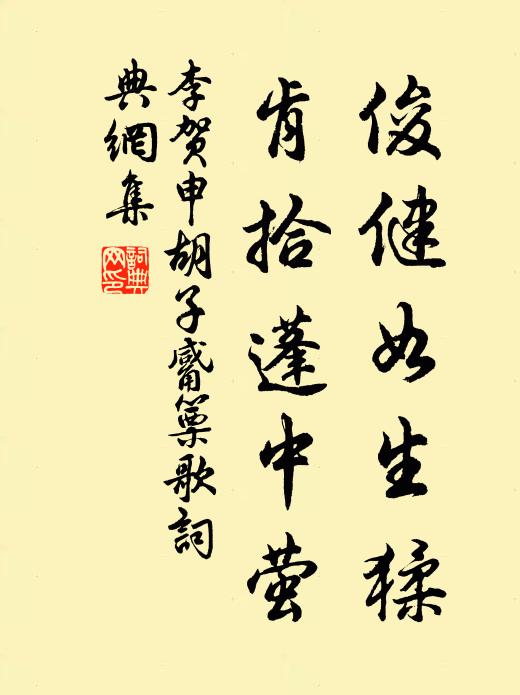 俊健如生猱
肯拾蓬中螢
李贺申胡子觱篥歌詞
典網集
詞典
网印